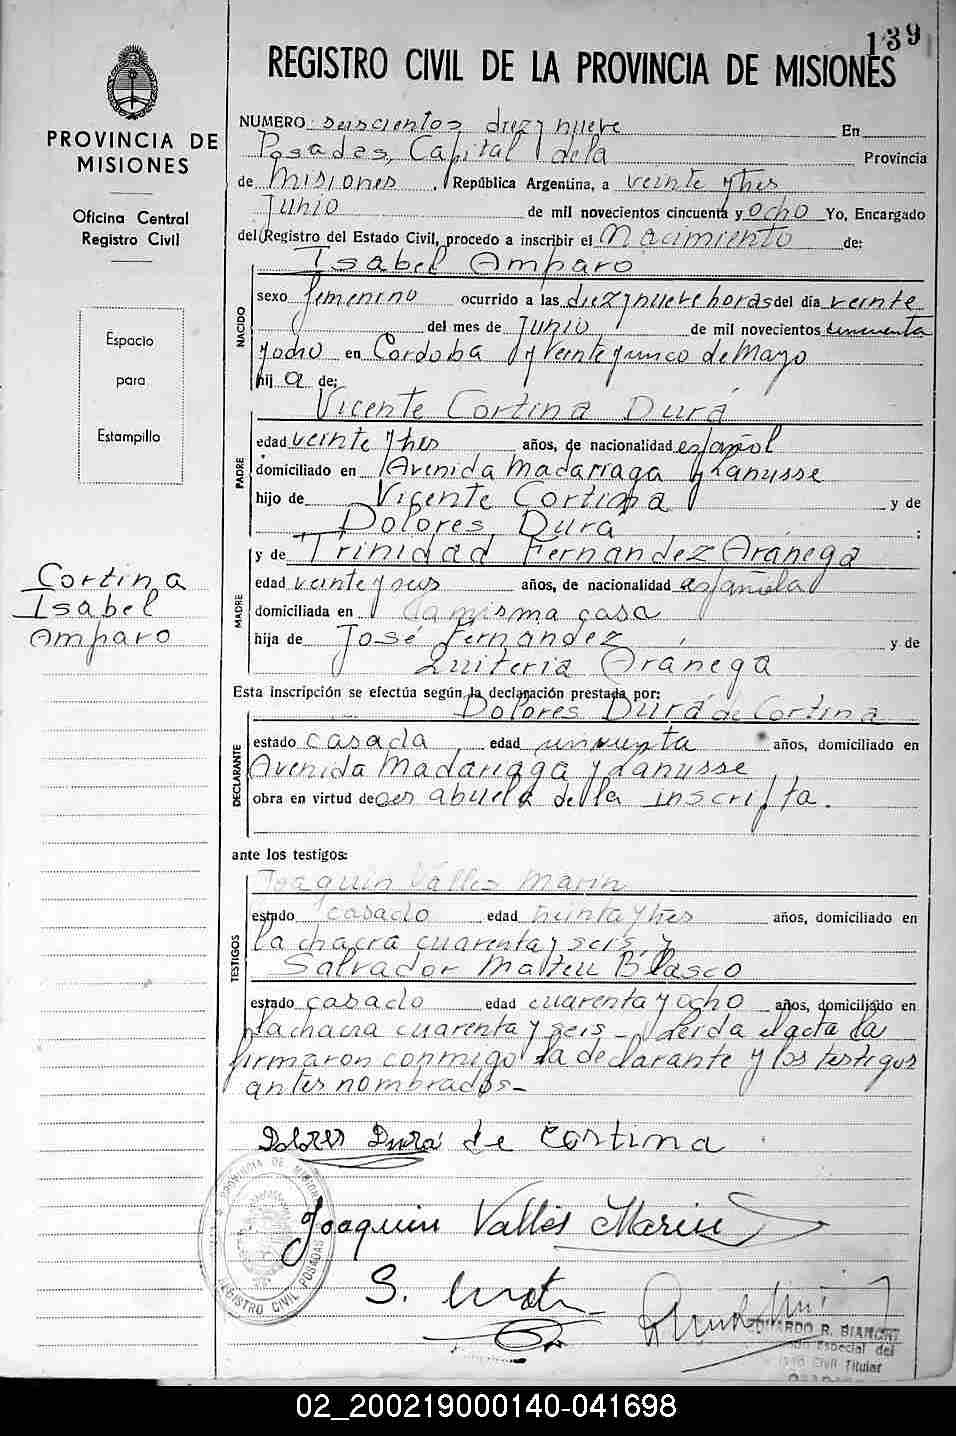 139
REGISTRO CIVIL DE LA PROVINCIA DE MISIONES
PROVINCIA DE
MISIONES
Oficina Central
Registro Civil
Espacio
para
Estampilla
Cortina
Isabel
Amparo
NUMERO seiscientos diez y nueve En
Posadas, Capital de la Provincia
de Misiones, República Argentina, a veinte y tres
Junio de mil novecientos cincuenta y ocho Yo, Encargado
del Registro del Estado Civil, procedo a inscribir el Nacimiento de:
Isabel Amparo
NACIDO
sexo femenino ocurrido a las diez y nueve horas del día veinte
del mes de Junio de mil novecientos cincuenta
y ocho en Cordoba y veinte y cinco de Mayo
hij a de:
Vicente Cortina Durá
PADRE
edad veinte y tres años, de nacionalidad español
domiciliado en Avenida Madariaga y Lanusse
hijo de Vicente Cortina y de
Dolores Durá ;
y de Trinidad Fernandez Aránega
MADRE
edad veinte y seis años, de nacionalidad española
domiciliada en la misma casa
hija de José Fernández y de
Quiteria Aránega
Esta inscripción se efectúa según la declaración prestada por:
Dolores Durá de Cortina
DECLARANTE
estado casada edad cincuenta años, domiciliado en
Avenida Madariaga y Lanusse
obra en virtud de ser abuela de la inscripta.
ante los testigos:
Joaquin Valles Marin
TESTIGOS
estado casado edad treinta y tres años, domiciliado en
la chacra cuarenta y seis, y
Salvador Mateu Blasco
estado casado edad cuarenta y ocho años, domiciliado en
la chacra cuarenta y seis - Leida el acta la
firmaron conmigo la declarante y los testigos
antes nombrados -
Dolores Durá de Cortina
Joaquin Vallés Marin
S. Mateu
PROVINCIA DE MISIONES
REGISTRO CIVIL POSADAS
EDUARDO R. BIANCHI
Especial del
Civil Titular
02_200219000140-041698